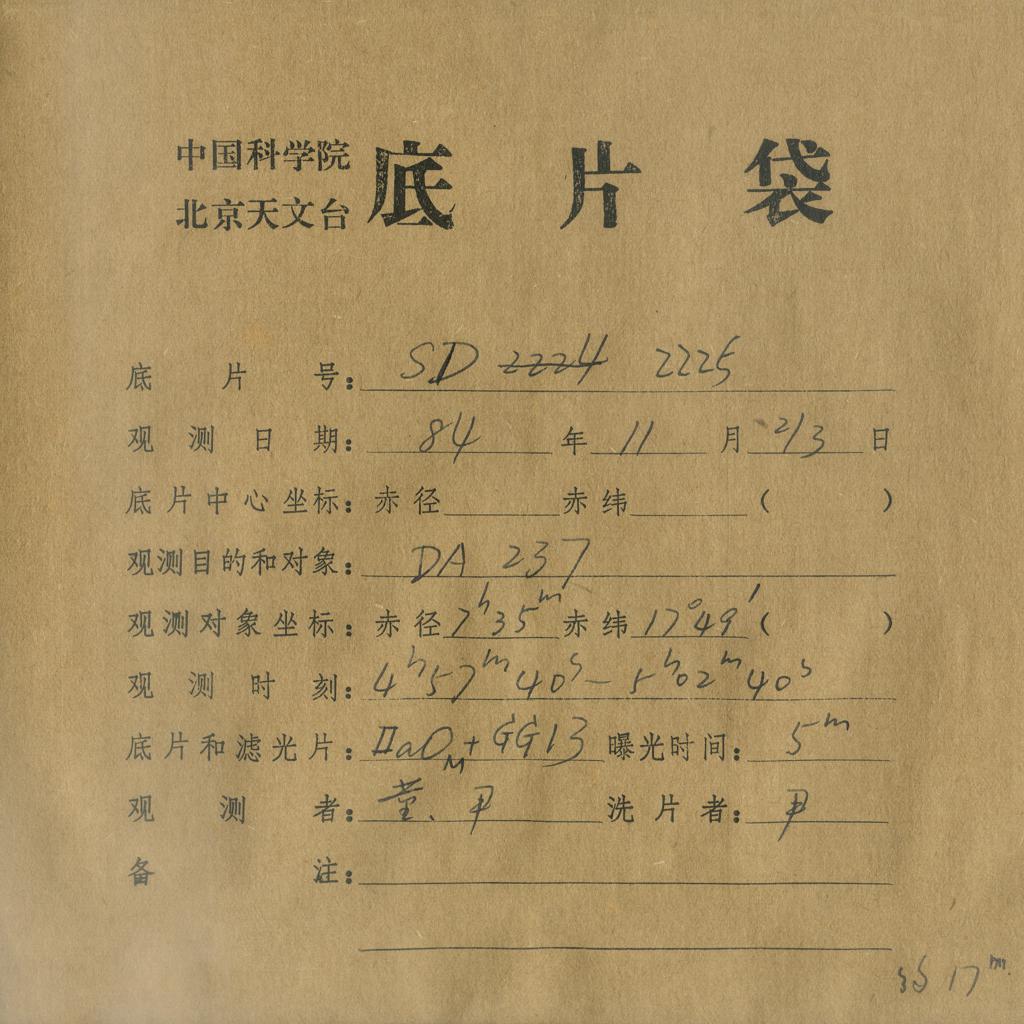 中国科学院
北京天文台 底片袋
底片号: SD 2224 2225
观测日期: 84 年 11 月 2/3 日
底片中心坐标: 赤径 赤纬 ( )
观测目的和对象: DA 237
观测对象坐标: 赤径 7h35m 赤纬 17°49′ ( )
观测时刻: 4h57m40s — 5h02m40s
底片和滤光片: IIaOM + GG13 曝光时间: 5m
观测者: 尹 洗片者: 尹
备注:
17m